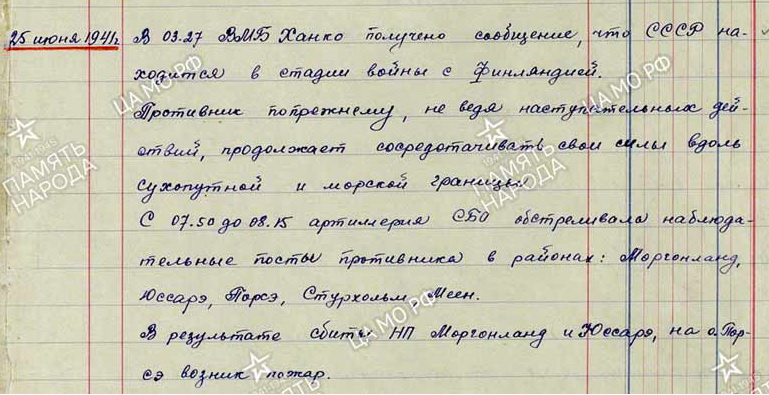 25 июня 1941г. В 03.27 ВМБ Ханко получено сообщение, что СССР на-
ходится в стадии войны с Финляндией.
Противник попрежнему, не ведя наступательных дей-
ствий, продолжает сосредотачивать свои силы вдоль
сухопутной и морской границы.
С 07.50 до 08.15 артиллерия СБО обстреливала наблюда-
тельные посты противника в районах: Моргонланд,
Юссарэ, Порсэ, Стурхольм, Меен.
В результате сбиты НП Моргонланд и Юссарэ, на о. Пор-
сэ возник пожар.
ЦА МО РФ
ПАМЯТЬ НАРОДА
1941-1945
ПАМЯТЬ НАРОДА
ЦА МО РФ
ЦА МО РФ
ЦА МО РФ